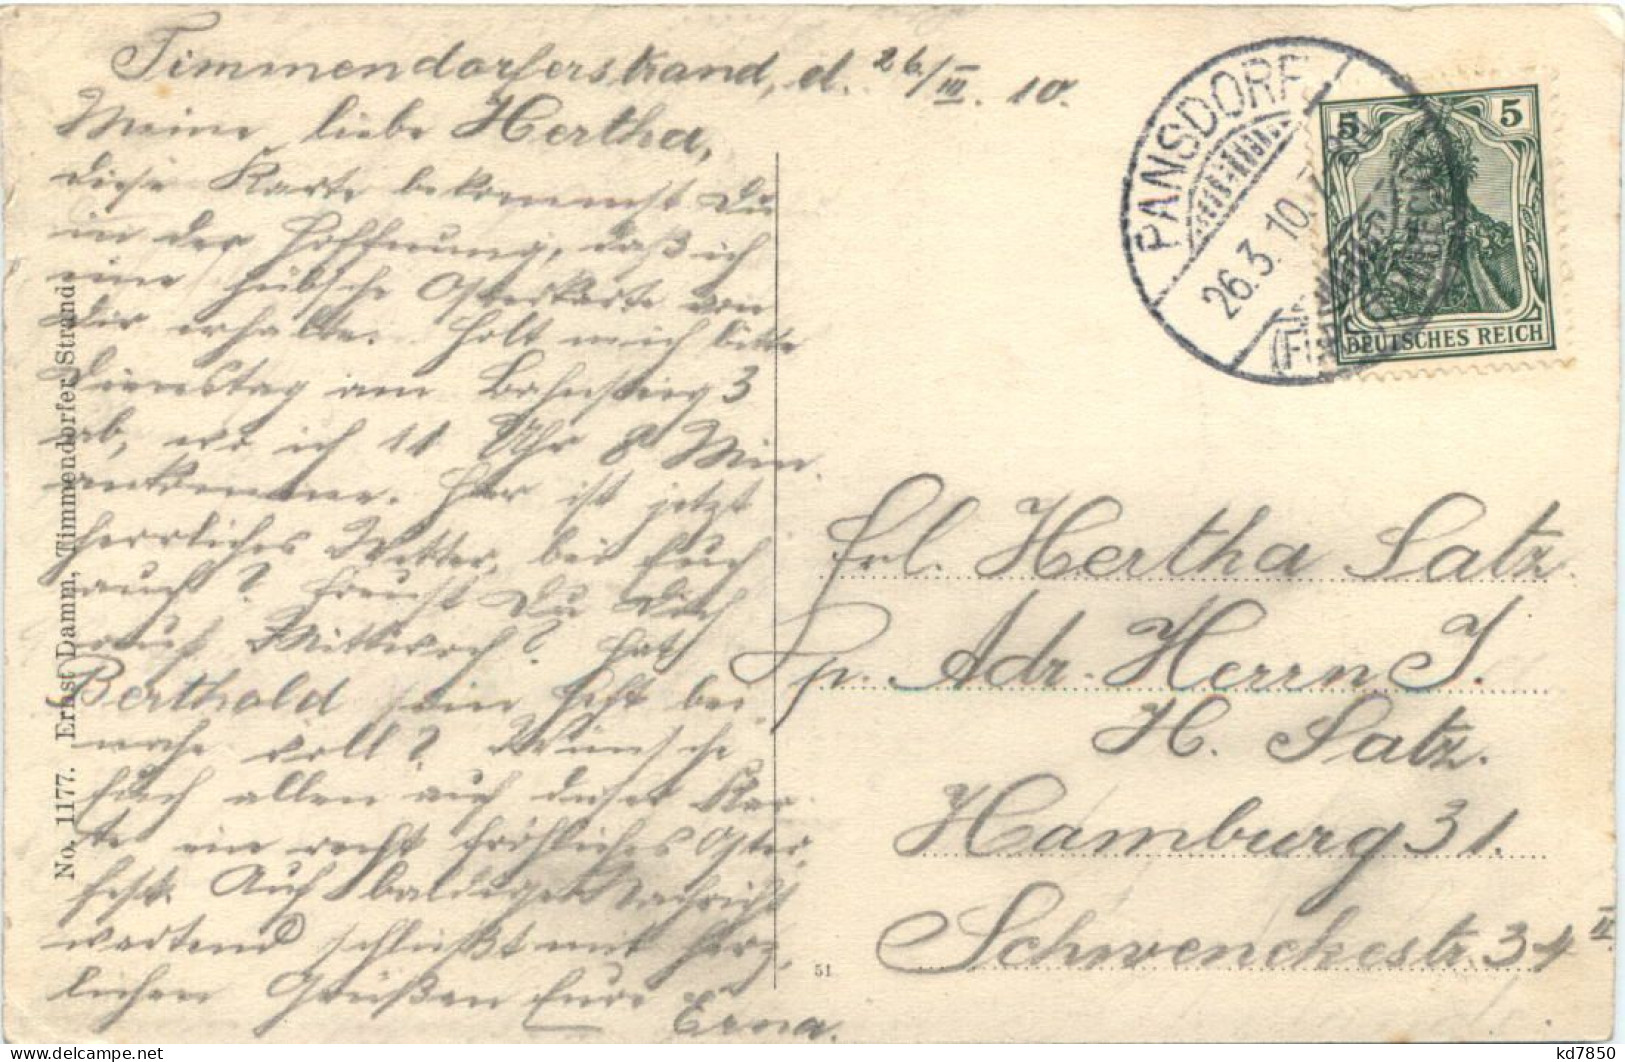 Timmendorferstrand, d. 26/III. 10.
Meine liebe Hertha,
diese Karte bekommst Du
in der Hoffnung, daß ich
eine hübsche Osterkarte von
Dir erhalte. Holt mich bitte
Dienstag am Bahnsteig 3
ab, wo ich 11 Uhr 8 Min.
ankomme. Hier ist jetzt
herrliches Wetter, bei Euch
auch? Freust Du Dich
auf Mittwoch? Hat
Berthold sein Heft bei-
nahe voll? Wünsche
Euch allen auf dieser Kar-
te ein recht fröhliches Oster-
fest. Auf baldige Nachricht
wartend schließt mit herz-
lichen Grüßen Eure
Erna.
No. 1177. Ernst Damm, Timmendorfer Strand
51
PANSDORF
26.3.10.
5 5
DEUTSCHES REICH
Frl. Hertha Satz.
p. Adr. Herrn J.
H. Satz.
Hamburg 31.
Schwenckestr. 34 II.
kd7850